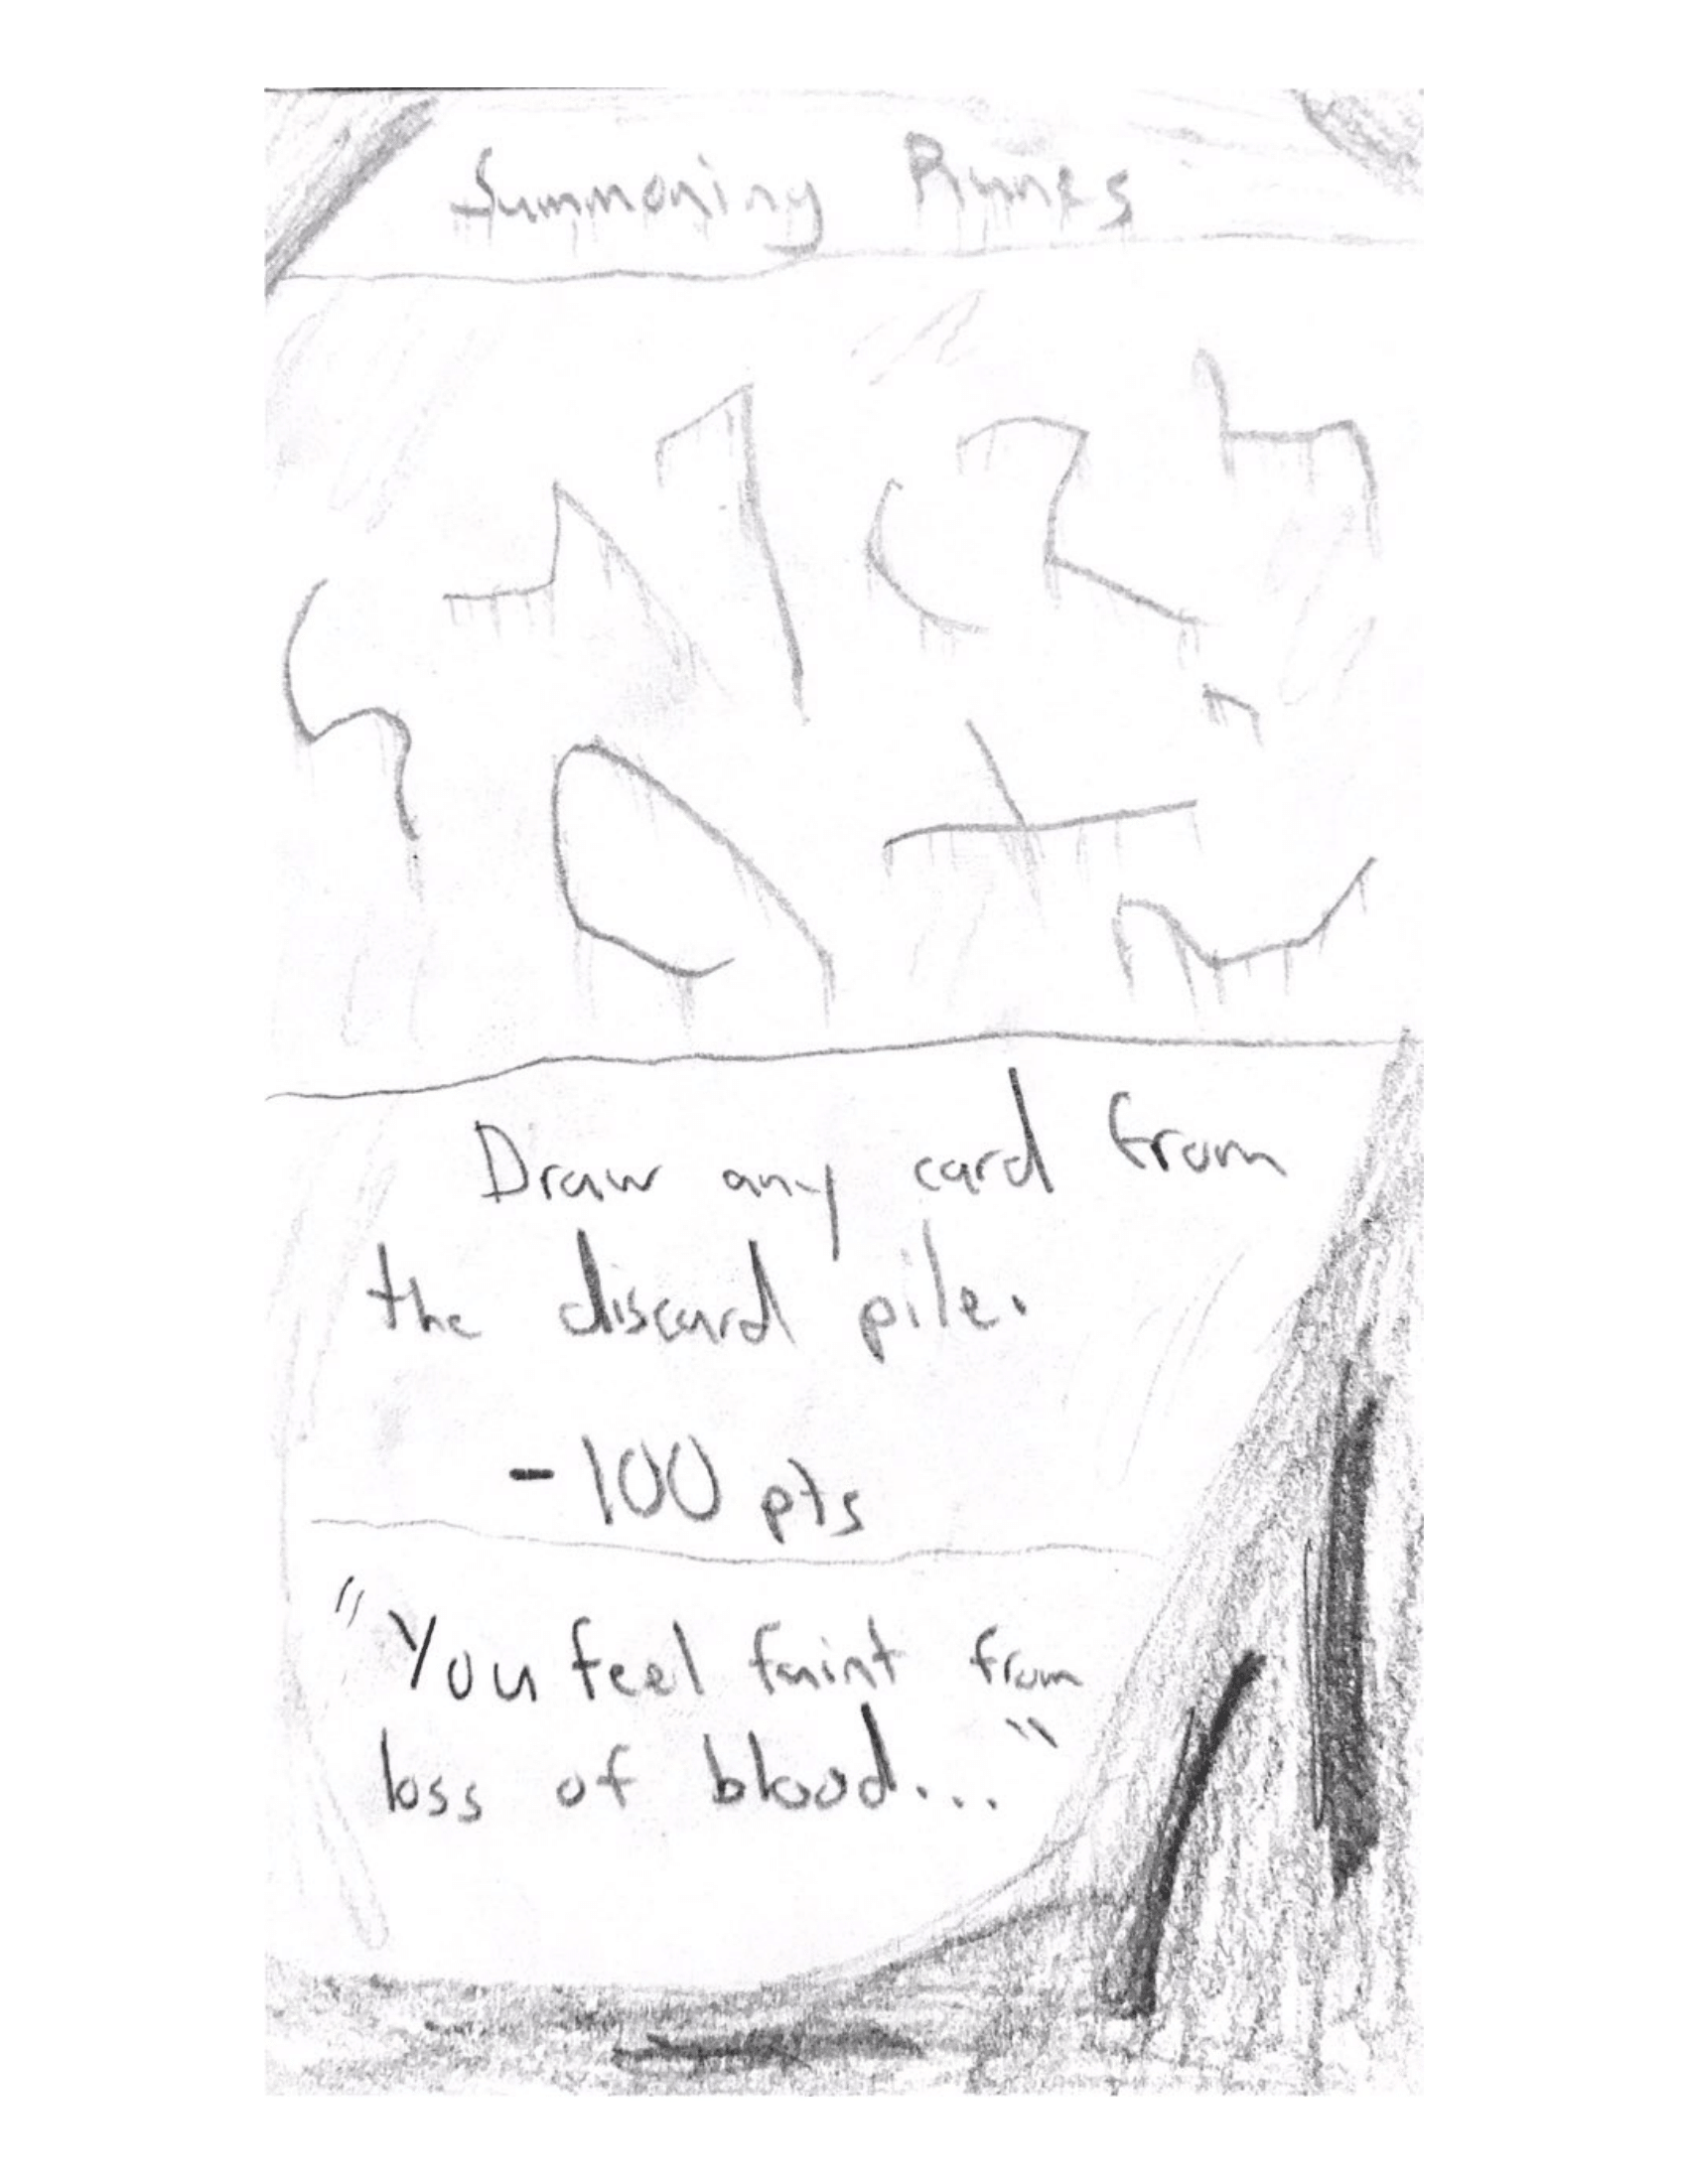 Summoning Runes
Draw any card from
the discard pile.
-100 pts
"You feel faint from
loss of blood..."